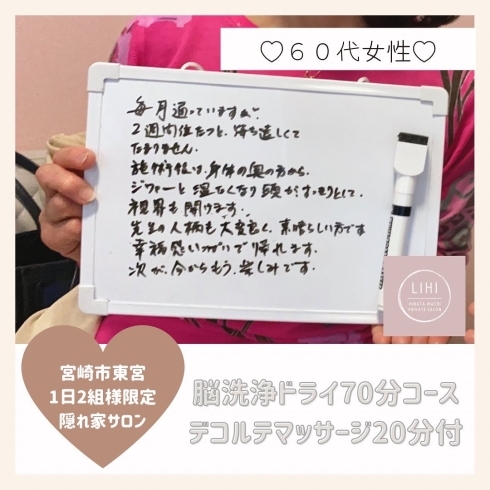 ♡60代女性♡
毎月通っていますが、
2週間位たつと、待ち遠しくて
たまりません。
施術後は、身体の奥の方から、
ジワァーと温たくなり頭がすっきりとして、
視界も開けます。
先生の人柄も大変良く、素晴らしい方です
幸福感いっぱいで帰れます。
次が、今からもう、楽しみです。
LIHI
HINATA MACHI
PRIVATE SALON
宮崎市東宮
1日2組様限定
隠れ家サロン
脳洗浄ドライ70分コース
デコルテマッサージ20分付